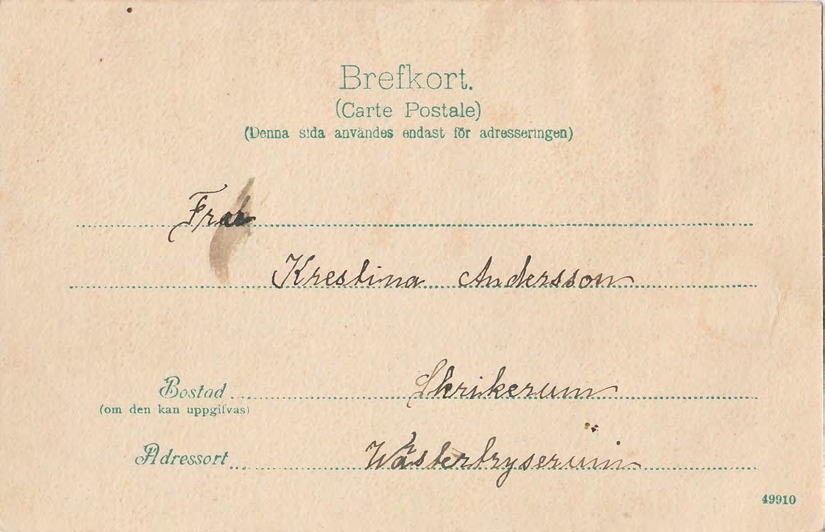 Brefkort.
(Carte Postale)
(Denna sida användes endast för adresseringen)
Frau
Krestina Andersson
Bostad Skrikerum
(om den kan uppgifvas)
Adressort Wästertryserum
49910